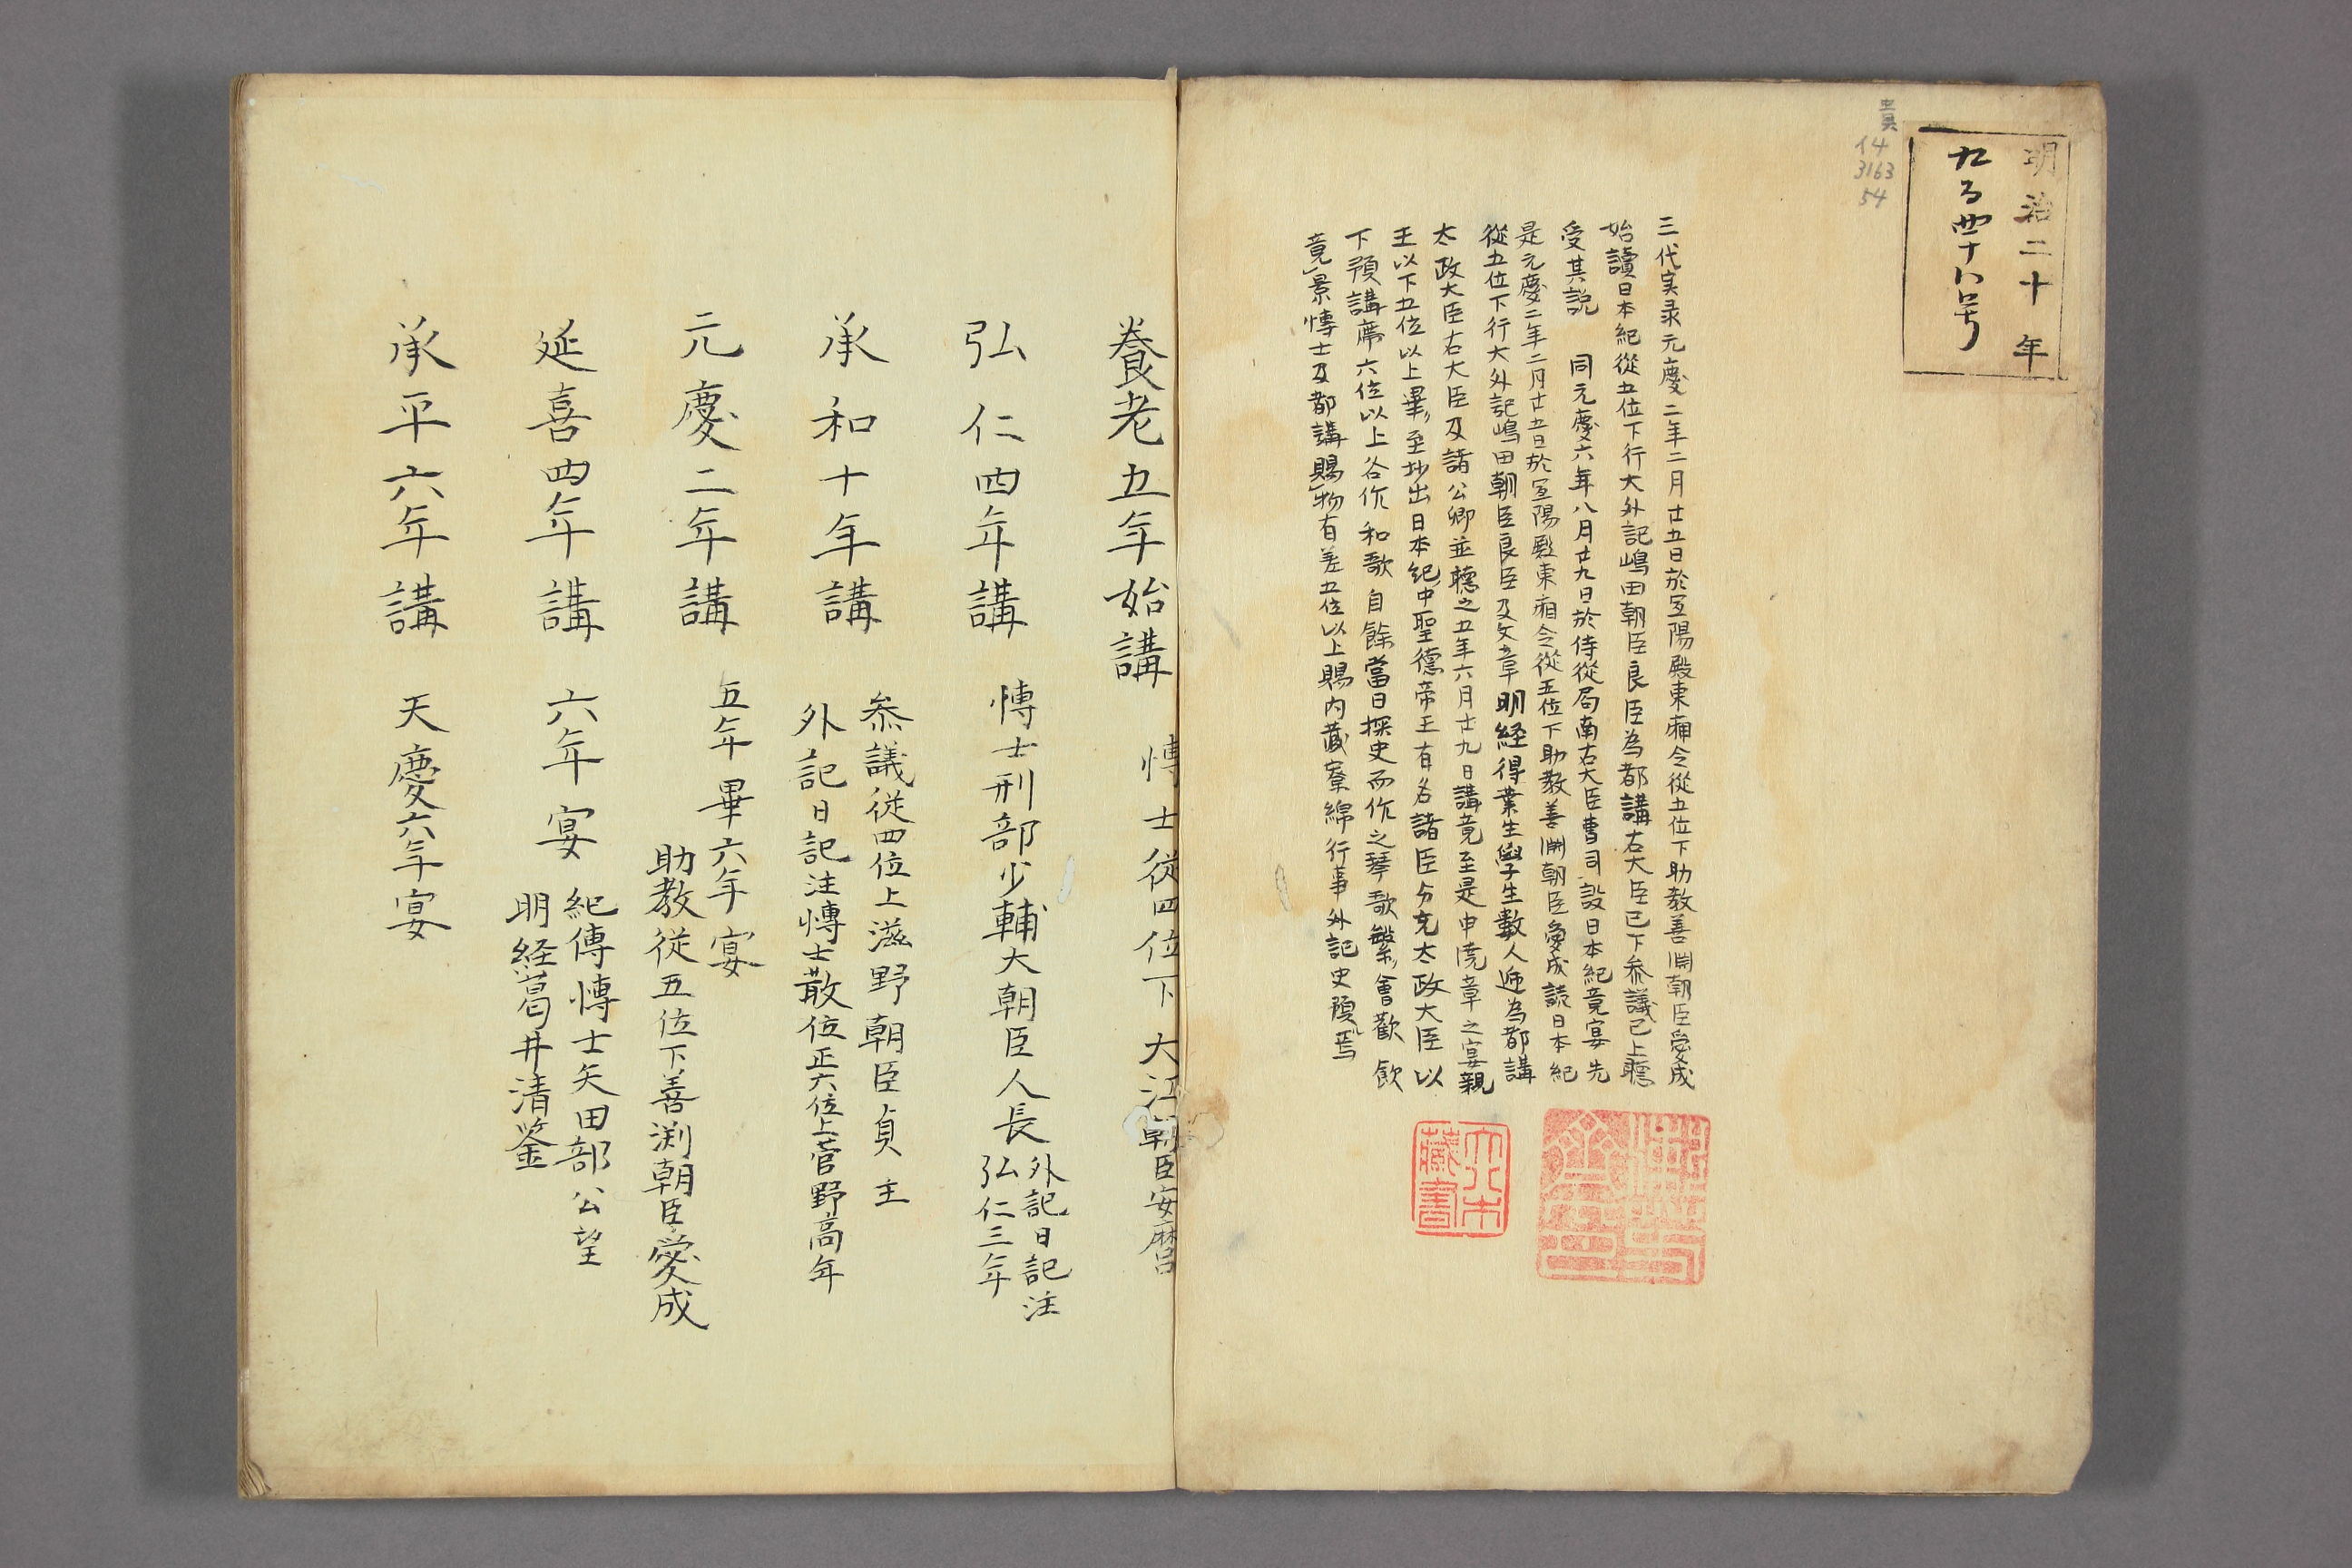 明治二十年
九百四十八号
貴
イ4
3163
54
三代実录元慶二年二月廿五日於宜陽殿東廂令從五位下助教善渕朝臣愛成
始讀日本紀從五位下行大外記嶋田朝臣良臣為都講右大臣已下参議已上聽
受其説　同元慶六年八月廿九日於侍從局南右大臣曹司設日本紀竟宴先
是元慶二年二月廿五日於宜陽殿東廂令從五位下助教善渕朝臣愛成讀日本紀
從五位下行大外記嶋田朝臣良臣及文章明経得業生學生數人逓為都講
太政大臣右大臣及諸公卿並聴之五年六月廿九日講竟至是申澆章之宴親
王以下五位以上畢至抄出日本紀中聖德帝王有名諸臣分充太政大臣以
下預講席六位以上各作和歌自餘當日探史而作之琴歌繁會歡飲
竟景愽士及都講賜物有差五位以上賜内藏寮綿行事外記史預焉
大木
藏書
養老五年始講　愽士從四位下大江朝臣安麿
弘仁四年講　愽士刑部少輔大朝臣人長　外記日記注
弘仁三年
承和十年講　参議從四位上滋野朝臣貞主
外記日記注愽士散位正六位上菅野高年
元慶二年講　五年畢六年宴
助教從五位下善渕朝臣愛成
延喜四年講　六年宴　紀傳愽士矢田部公望
明経葛井清鉴
承平六年講　天慶六年宴